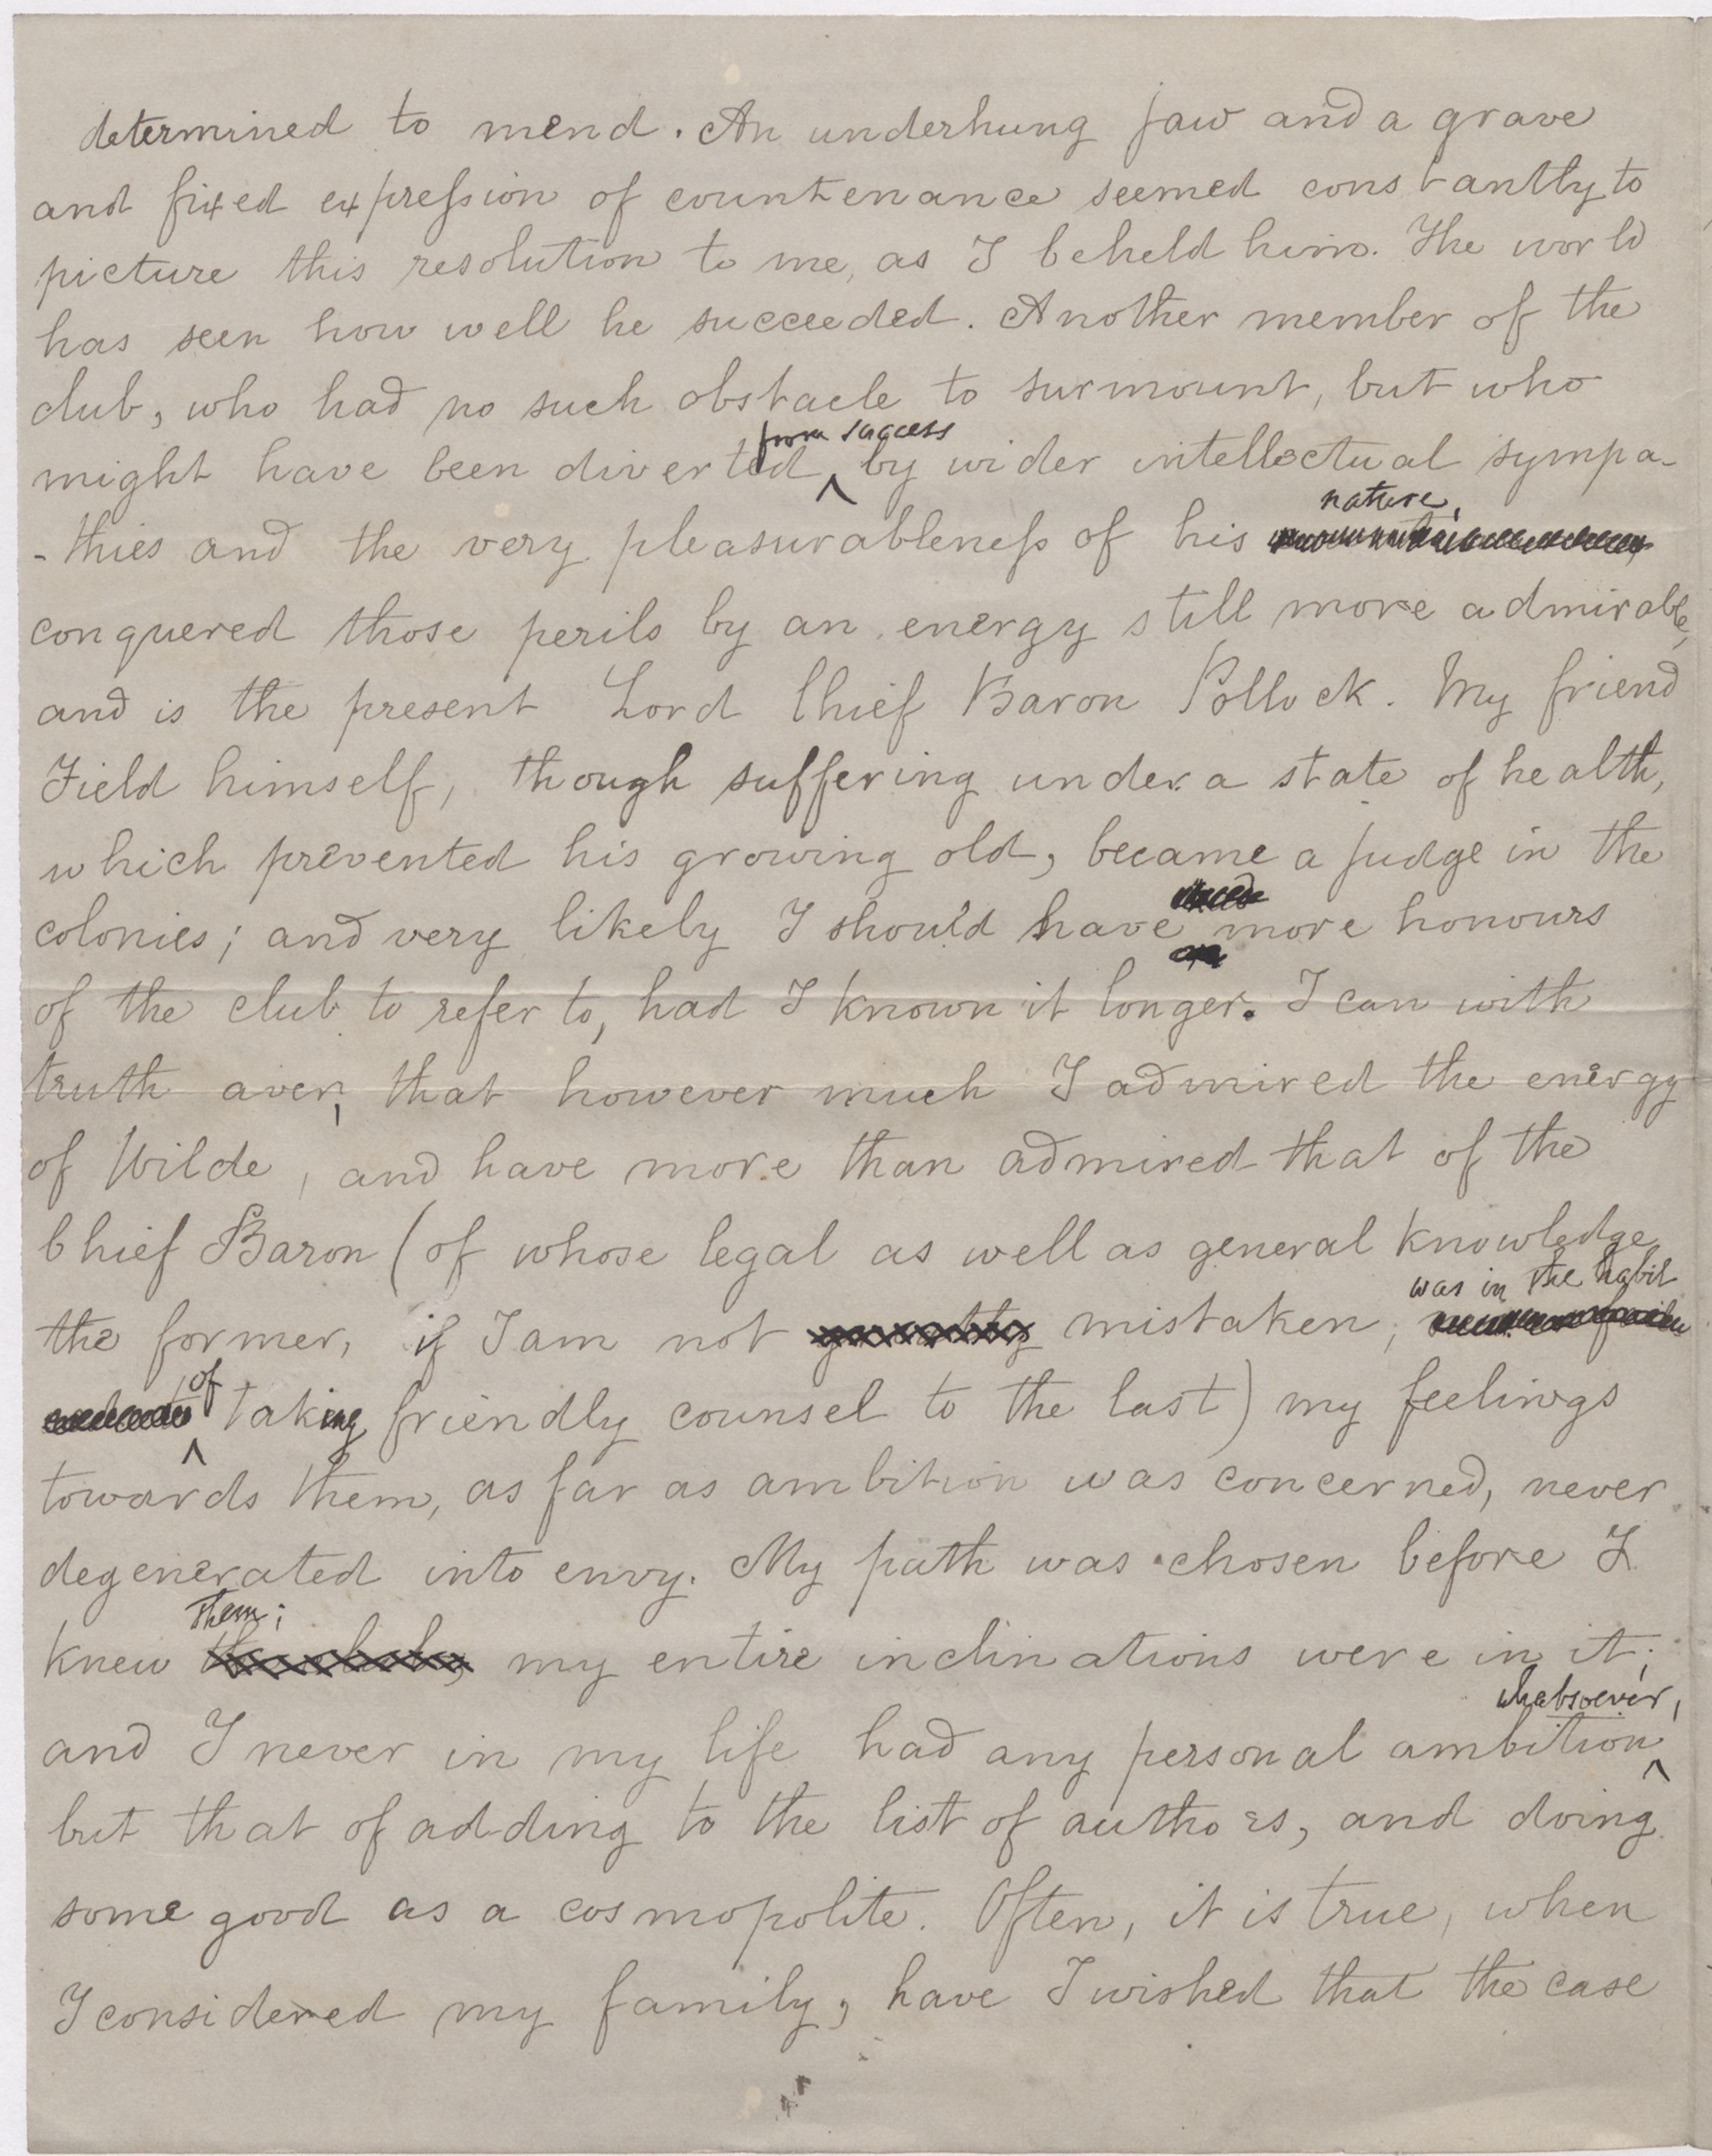 determined to mend. An underhung jaw and a grave
and fixed expreſsion of countenance seemed constantly to
picture this resolution to me, as I beheld him. The world
has seen how well he succeeded. Another member of the
club, who had no such obstacle to surmount, but who
from success
might have been diverted by wider intellectual sympa-
nature,
-thies and the very pleasurableneſs of his
conquered those perils by an energy still more admirable,
and is the present Lord Chief Baron Pollock. My friend
Field himself, though suffering under a state of health,
which prevented his growing old, became a judge in the
colonies; and very likely I should have more honours
of the club to refer to, had I known it longer. I can with
truth aver, that however much I admired the energy
of Wilde, and have more than admired that of the
Chief Baron (of whose legal as well as general knowledge
was in the habit
the former, if I am not mistaken,
of
taking friendly counsel to the last) my feelings
towards them, as far as ambition was concerned, never
degenerated into envy. My path was chosen before I
them;
knew my entire inclinations were in it;
whatsoever,
and I never in my life had any personal ambition
but that of adding to the list of authors, and doing
some good as a cosmopolite. Often, it is true, when
I considered my family, have I wished that the case